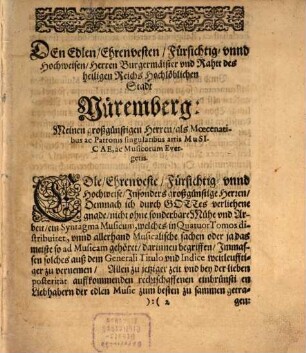 DEn Edlen/Ehrenvesten/Fürsichtig/vnnd
Hochweisen/Herren Burgermäister vnd Raht des
heiligen Reichs Hochlöblichen
Stadt
Nüremberg:
Meinen großgünstigen Herren/als Mœcenati-
bus ac Patronis singularibus artis MuSI-
CAE, ac Musicorum Ever-
getis.
EDle/Ehrenveste/Fürsichtig/vnnd
Hochweise/Insonders großgünstige Herren/
Demnach ich durch GOTTes verliehene
gnade/nicht ohne sonderbare Mühe vnd Ar-
beit/ein Syntagma Musicum, welches in Quatuor Tomos di-
stribuiret, vnnd allerhand Musicalische sachen oder ja das
meiste so ad Musicam gehöret/darinnen begriffen/Inmas-
sen solches auß dem Generali Titulo vnd Indice weitleufti-
ger zu vernemen/Allen zu jetziger zeit vnd bey der lieben
posteritat auffkommenden rechtschaffenen einbrünsti en
Liebhabern der edlen Music zum besten zu sammen getra-
):( 2
gen: